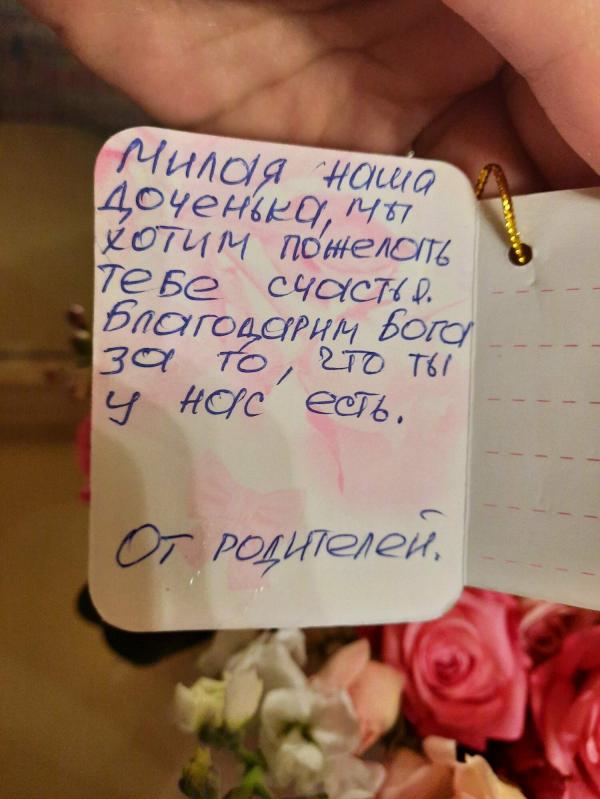 Милая наша
доченька, мы
хотим пожелать
тебе счастья.
Благодарим Бога
за то, что ты
у нас есть.
От родителей.